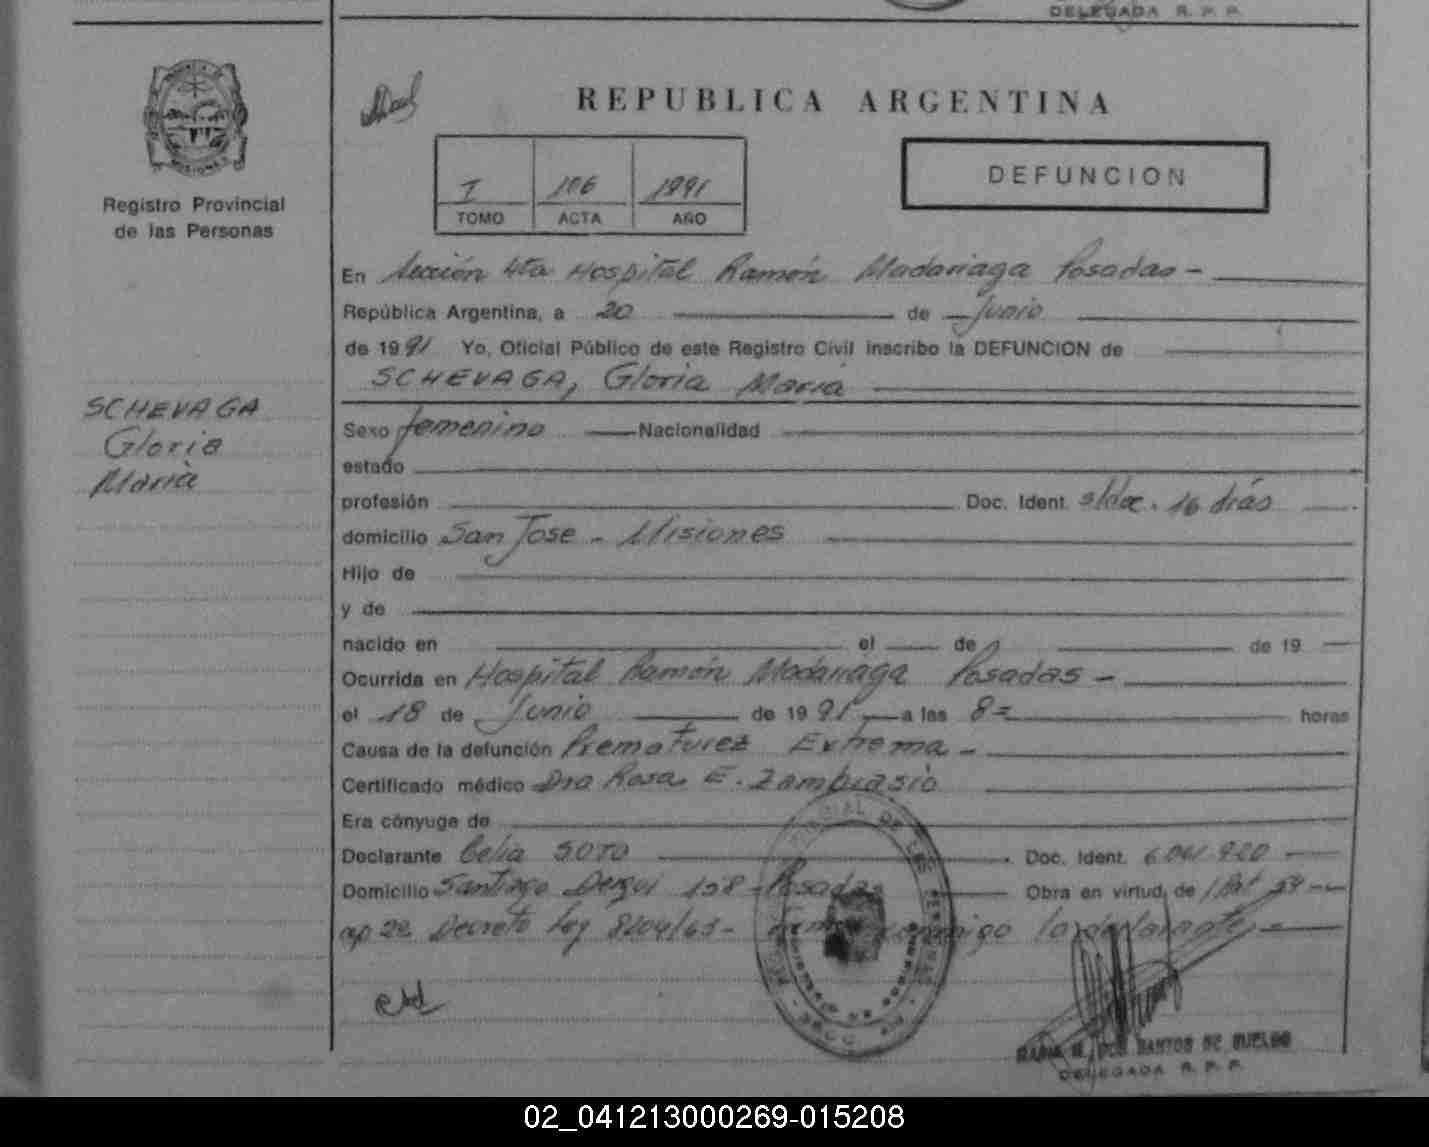 DELEGADA R. P. P.
REPUBLICA ARGENTINA
I 106 1991
TOMO ACTA AÑO
DEFUNCION
MISIONES
Registro Provincial
de las Personas
SCHEVAGA
Gloria
Maria
En Sección 4ta Hospital Ramón Madariaga Posadas -
República Argentina, a 20 de Junio
de 1991 Yo, Oficial Público de este Registro Civil inscribo la DEFUNCION de
SCHEVAGA, Gloria Maria
Sexo femenino Nacionalidad
estado
profesión Doc. Ident. s/doc. 16 días
domicilio San Jose - Misiones
Hijo de
y de
nacido en el de de 19
Ocurrida en Hospital Ramón Madariaga Posadas -
el 18 de Junio de 1991 a las 8= horas
Causa de la defunción Prematurez Extrema -
Certificado médico Dra Rosa E. Zambiasio
Era cónyuge de
Declarante Celia SOTO Doc. Ident. 6.041.920
Domicilio Santiago Derqui 158 - Posadas Obra en virtud de
ap 22 Decreto Ley 8204/63 - conmigo la declarante -
DOS SANTOS DE
DELEGADA R. P. P.
02_041213000269-015208